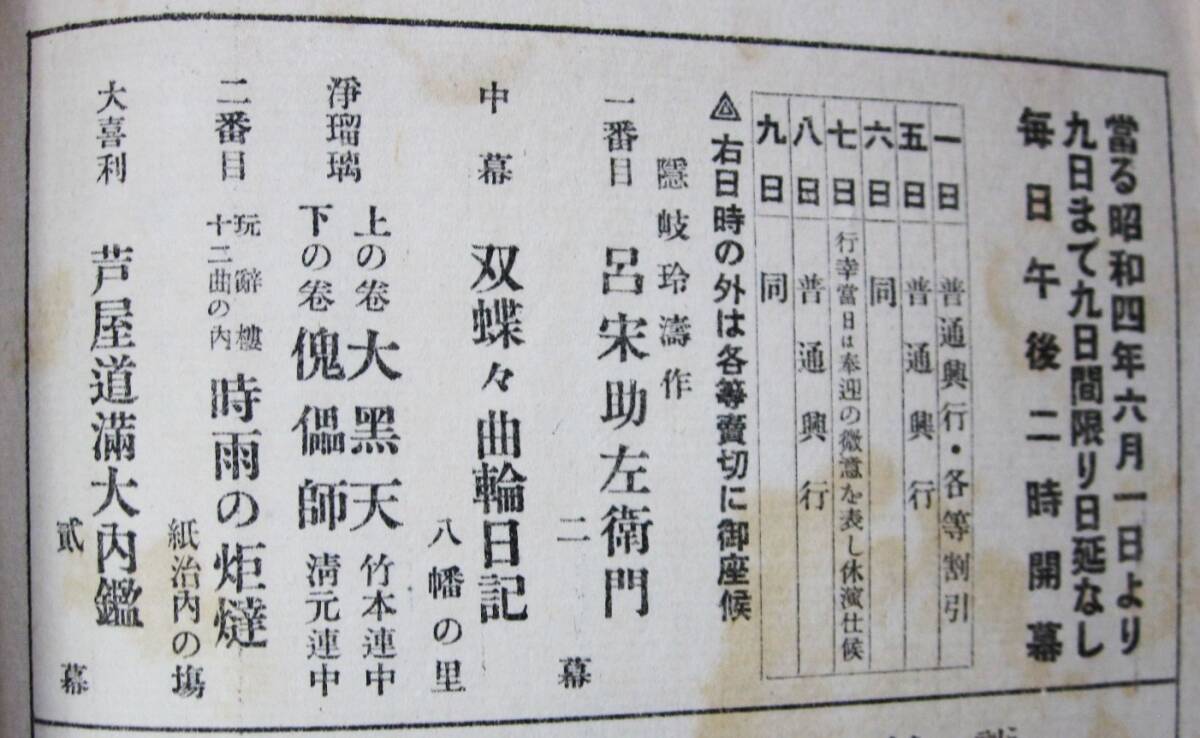 當る昭和四年六月一日より
九日まて九日間限り日延なし
毎日午後二時開幕
一日 普通興行・各等割引
五日 普通興行
六日 同
七日 行幸當日は奉迎の微意を表し休演仕候
八日 普通興行
九日 同
右日時の外は各等賣切に御座候
隱岐玲濤作
一番目 呂宋助左衛門 二幕
中幕 双蝶々曲輪日記
八幡の里
淨瑠璃
上の卷 大黑天 竹本連中
下の卷 傀儡師 清元連中
二番目 玩辭樓十二曲の內 時雨の炬燵
紙治內の塲
大喜利 芦屋道滿大內鑑
貳幕